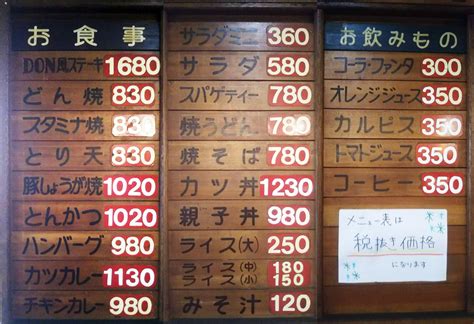 お食事
DON風ステーキ 1680
どん焼 830
スタミナ焼 830
とり天 830
豚しょうが焼 1020
とんかつ 1020
ハンバーグ 980
カツカレー 1130
チキンカレー 980
サラダミニ 360
サラダ 580
スパゲティー 780
焼うどん 780
焼そば 780
カツ丼 1230
親子丼 980
ライス(大) 250
ライス(中) 180
ライス(小) 150
みそ汁 120
お飲みもの
コーラ・ファンタ 300
オレンジジュース 350
カルピス 350
トマトジュース 350
コーヒー 350
メニュー表は
税抜き価格
になります